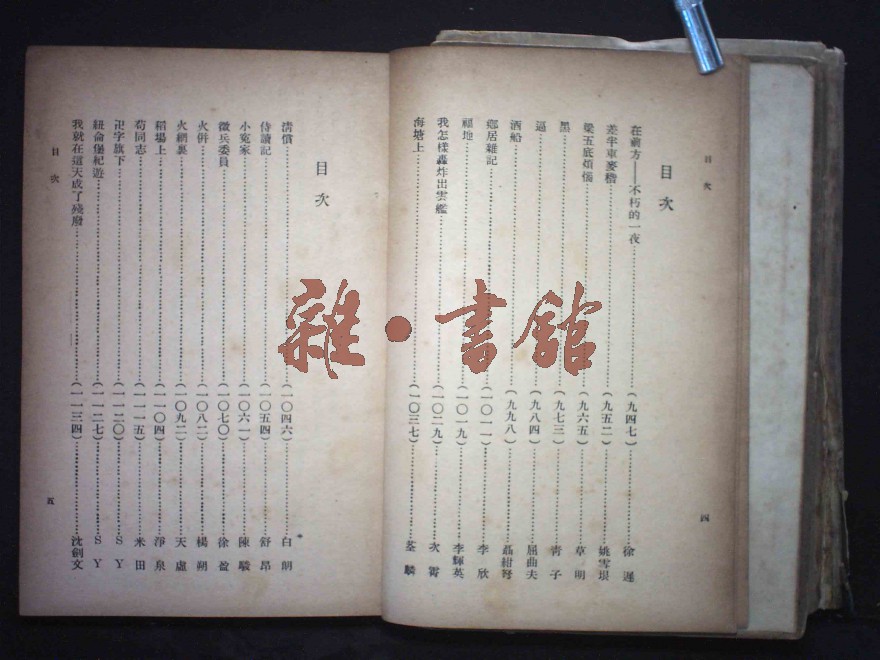 目次
四
目次
在前方——不朽的一夜(九四七)徐遲
差半車麥稭(九五二)姚雪垠
梁五底煩惱(九六五)草明
黑(九七三)青子
逼(九八四)屈曲夫
酒船(九九八)聶紺弩
鄉居雜記(一〇一一)李欣
福地(一〇一九)李輝英
我怎樣轟炸出雲艦(一〇二九)次霄
海塘上(一〇三七)荃麟
目次
清償(一〇四六)白朗
侍讀記(一〇五四)舒昂
小冤家(一〇六一)陳駿
徵兵委員(一〇七〇)徐盈
火併(一〇八二)楊朔
火網裏(一〇九二)天虛
稻場上(一一〇四)淨泉
荀同志(一一一五)米田
卍字旗下(一一二〇)S Y
紐倫堡紀遊(一一二七)S Y
我就在這天成了殘廢(一一三四)沈劍文
目次
五
雜·書館